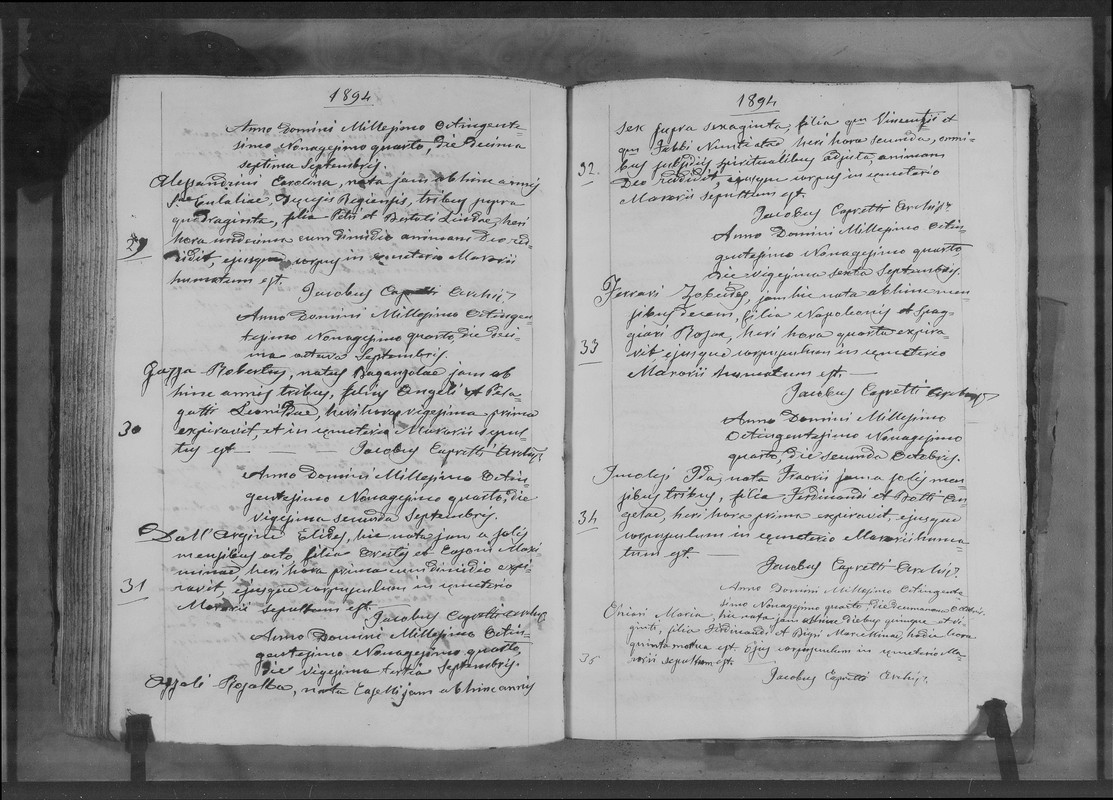 1894
Anno Domini Millesimo Octingente=
simo Nonagesimo quarto, die decima
septima Septembris.
Alessandrini Carolina, nata jam ab hinc annis
S. Eulaliae, Regiensis, tribus supra
quadraginta, filia Petri et Bertoli Lucidae, heri
29
hora undecima cum dimidio animam Deo red=
didit, ejusque corpus in cemeterio Marorii
humatum est.
Jacobus Capretti Archip.
Anno Domini Millesimo Octingen=
tesimo Nonagesimo quarto, die deci=
ma octava Septembris.
Gazza Robertus, natus Baganzolae jam ab
hinc annis tribus, filius Angeli et Pela=
gatti Leonildae, heri hora vigesima prima
30
expiravit, et in cemeterio Marorii sepul=
tus est Jacobus Capretti Archip.
Anno Domini Millesimo Octin=
gentesimo Nonagesimo quarto, die
vigesima secunda Septembris.
Dall'Argine Elides, hic nata jam a solis
mensibus octo, filia Orestis et Maxi=
minae, heri hora prima cum dimidio expi=
31
ravit, ejusque corpusculum in cemeterio
Marorii sepultum est.
Jacobus Capretti Archip.
Anno Domini Millesimo Octin=
gentesimo Nonagesimo quarto,
die vigesima tertia Septembris.
Azzali Rosalba, nata jam ab hinc annis
1894
sex supra sexaginta, filia qm Vincentii et
qm Fabbi heri hora secunda, omni=
32.
bus subsidiis spiritualibus adjuta animam
Deo reddidit, ejusque corpus in cemeterio
Marorii sepultum est.
Jacobus Capretti Archip.
Anno Domini Millesimo Octin=
gentesimo Nonagesimo quarto,
die vigesima sexta Septembris.
Ferrari Zobeides, jam hic nata ab hinc men=
sibus decem, filia Napoleonis et Spag=
giari Rosae, heri hora quarta expira=
33
vit ejusque corpusculum in cemeterio
Marorii humatum est.
Jacobus Capretti Archip.
Anno Domini Millesimo
Octingentesimo Nonagesimo
quarto, die secunda Octobris.
Ida, nata jam a solis men=
sibus tribus, filia Ferdinandi et An=
34
getae, heri hora prima expiravit, ejusque
corpusculum in cemeterio Marorii huma=
tum est.
Jacobus Capretti Archip.
Anno Domini Millesimo Octingente
simo Nonagesimo quarto, die decimanona Octobris.
Chiari Maria, hic nata jam ab hinc diebus quinque et vi=
ginti, filia Ferdinandi et Bigi Marcellinae, hodie hora
quinta mortua est. Ejus corpusculum in cemeterio Ma=
35
rorii sepultum est.
Jacobus Capretti Archip.